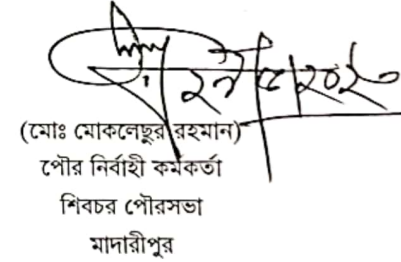 (মোঃ মোকলেছুর রহমান)
পৌর নির্বাহী কর্মকর্তা
শিবচর পৌরসভা
মাদারীপুর